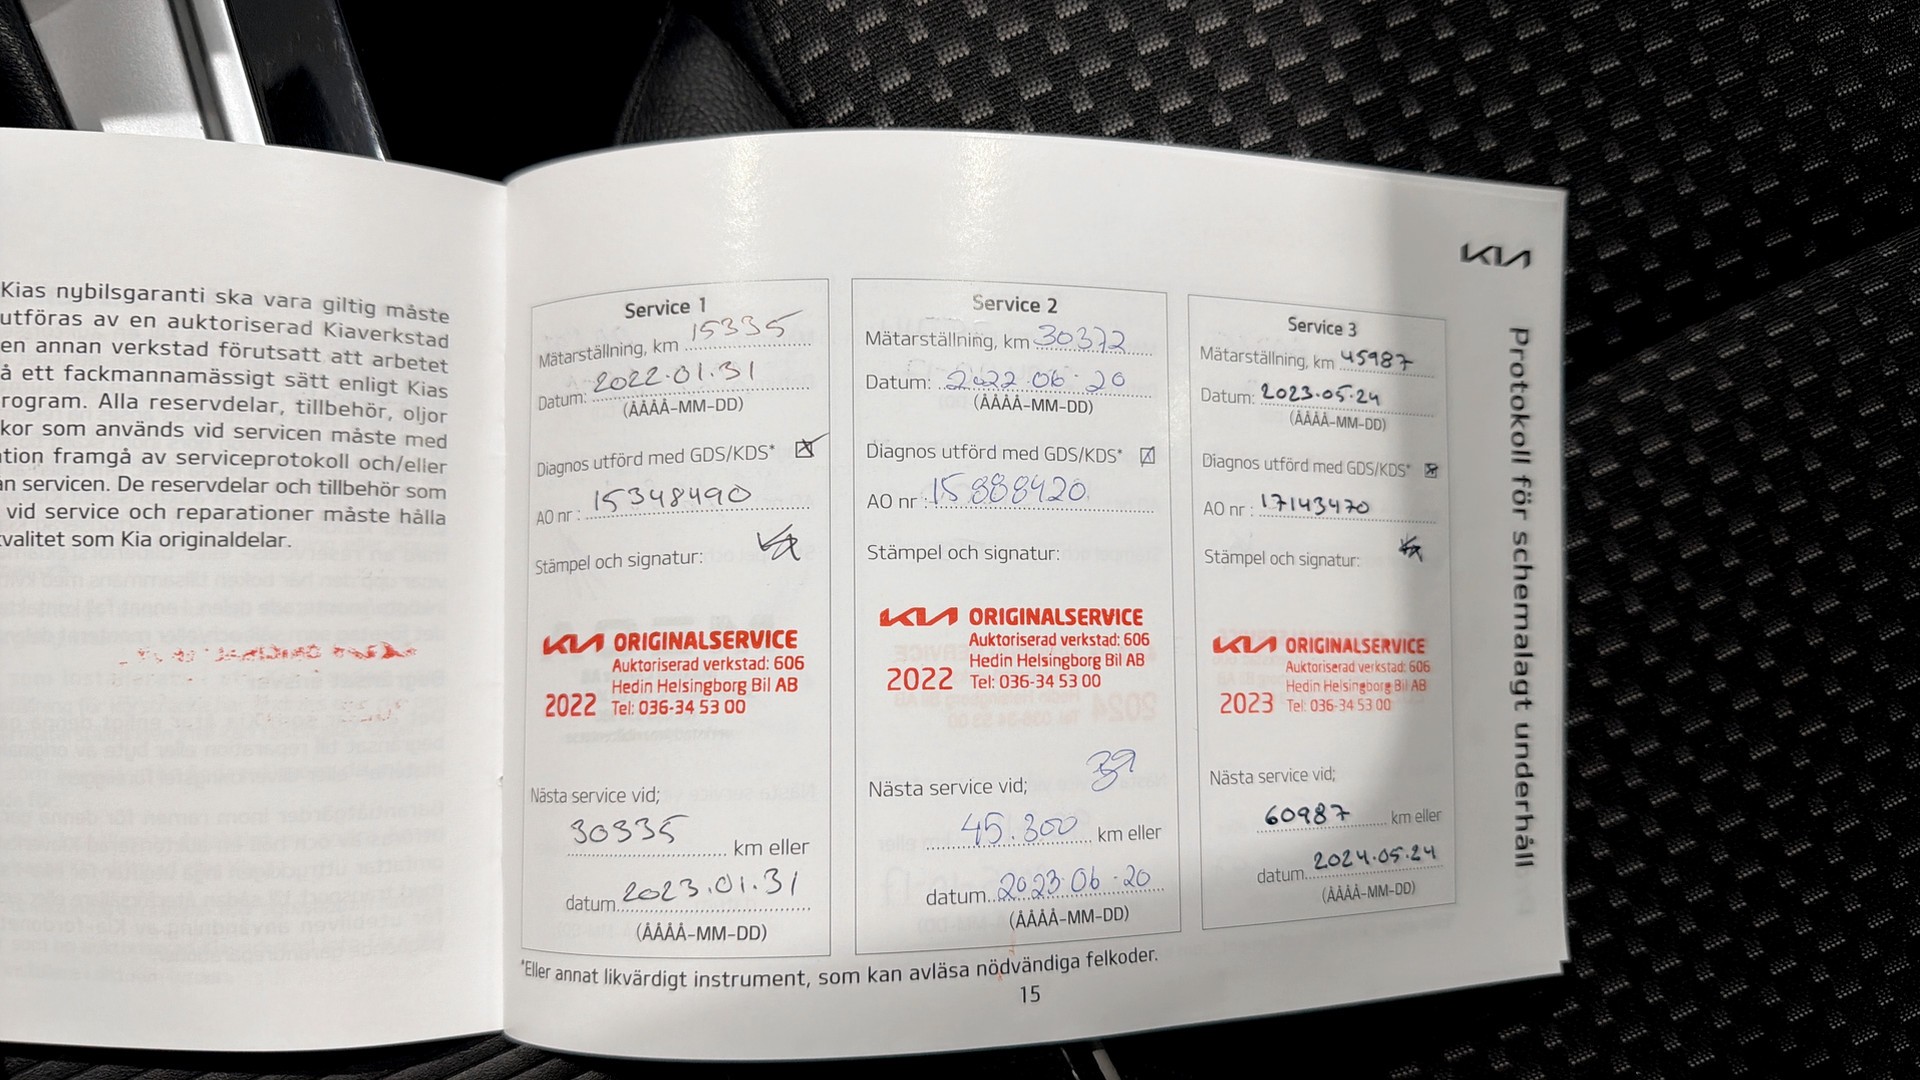 Kias nybilsgaranti ska vara giltig måste
utföras av en auktoriserad Kiaverkstad
en annan verkstad förutsatt att arbetet
å ett fackmannamässigt sätt enligt Kias
rogram. Alla reservdelar, tillbehör, oljor
kor som används vid servicen måste med
tion framgå av serviceprotokoll och/eller
ån servicen. De reservdelar och tillbehör som
vid service och reparationer måste hålla
valitet som Kia originaldelar.
KIA
Protokoll för schemalagt underhåll
Service 1
Mätarställning, km 15335
Datum: 2022.01.31
(ÅÅÅÅ-MM-DD)
Diagnos utförd med GDS/KDS*
AO nr : 15348490
Stämpel och signatur:
KIA ORIGINALSERVICE
Auktoriserad verkstad: 606
Hedin Helsingborg Bil AB
2022 Tel: 036-34 53 00
Nästa service vid;
30335 km eller
datum 2023.01.31
(ÅÅÅÅ-MM-DD)
Service 2
Mätarställning, km 30372
Datum: 2022.06.20
(ÅÅÅÅ-MM-DD)
Diagnos utförd med GDS/KDS*
AO nr : 15888420
Stämpel och signatur:
KIA ORIGINALSERVICE
Auktoriserad verkstad: 606
Hedin Helsingborg Bil AB
2022 Tel: 036-34 53 00
Nästa service vid;
45.300 km eller
datum 2023.06.20
(ÅÅÅÅ-MM-DD)
Service 3
Mätarställning, km 45987
Datum: 2023.05.24
(ÅÅÅÅ-MM-DD)
Diagnos utförd med GDS/KDS*
AO nr : 17143470
Stämpel och signatur:
KIA ORIGINALSERVICE
Auktoriserad verkstad: 606
Hedin Helsingborg Bil AB
2023 Tel: 036-34 53 00
Nästa service vid;
60987 km eller
datum 2024.05.24
(ÅÅÅÅ-MM-DD)
*Eller annat likvärdigt instrument, som kan avläsa nödvändiga felkoder.
15